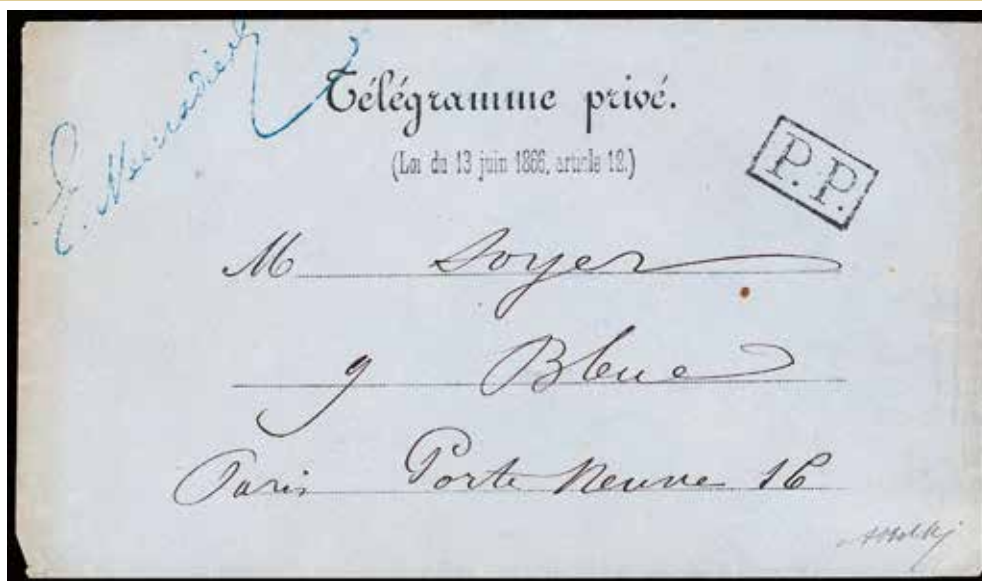 Télégramme privé.
(Loi du 13 juin 1866, article 18.)
P.P.
M Soyer
9 Bleue
Paris Porte Neuve 16